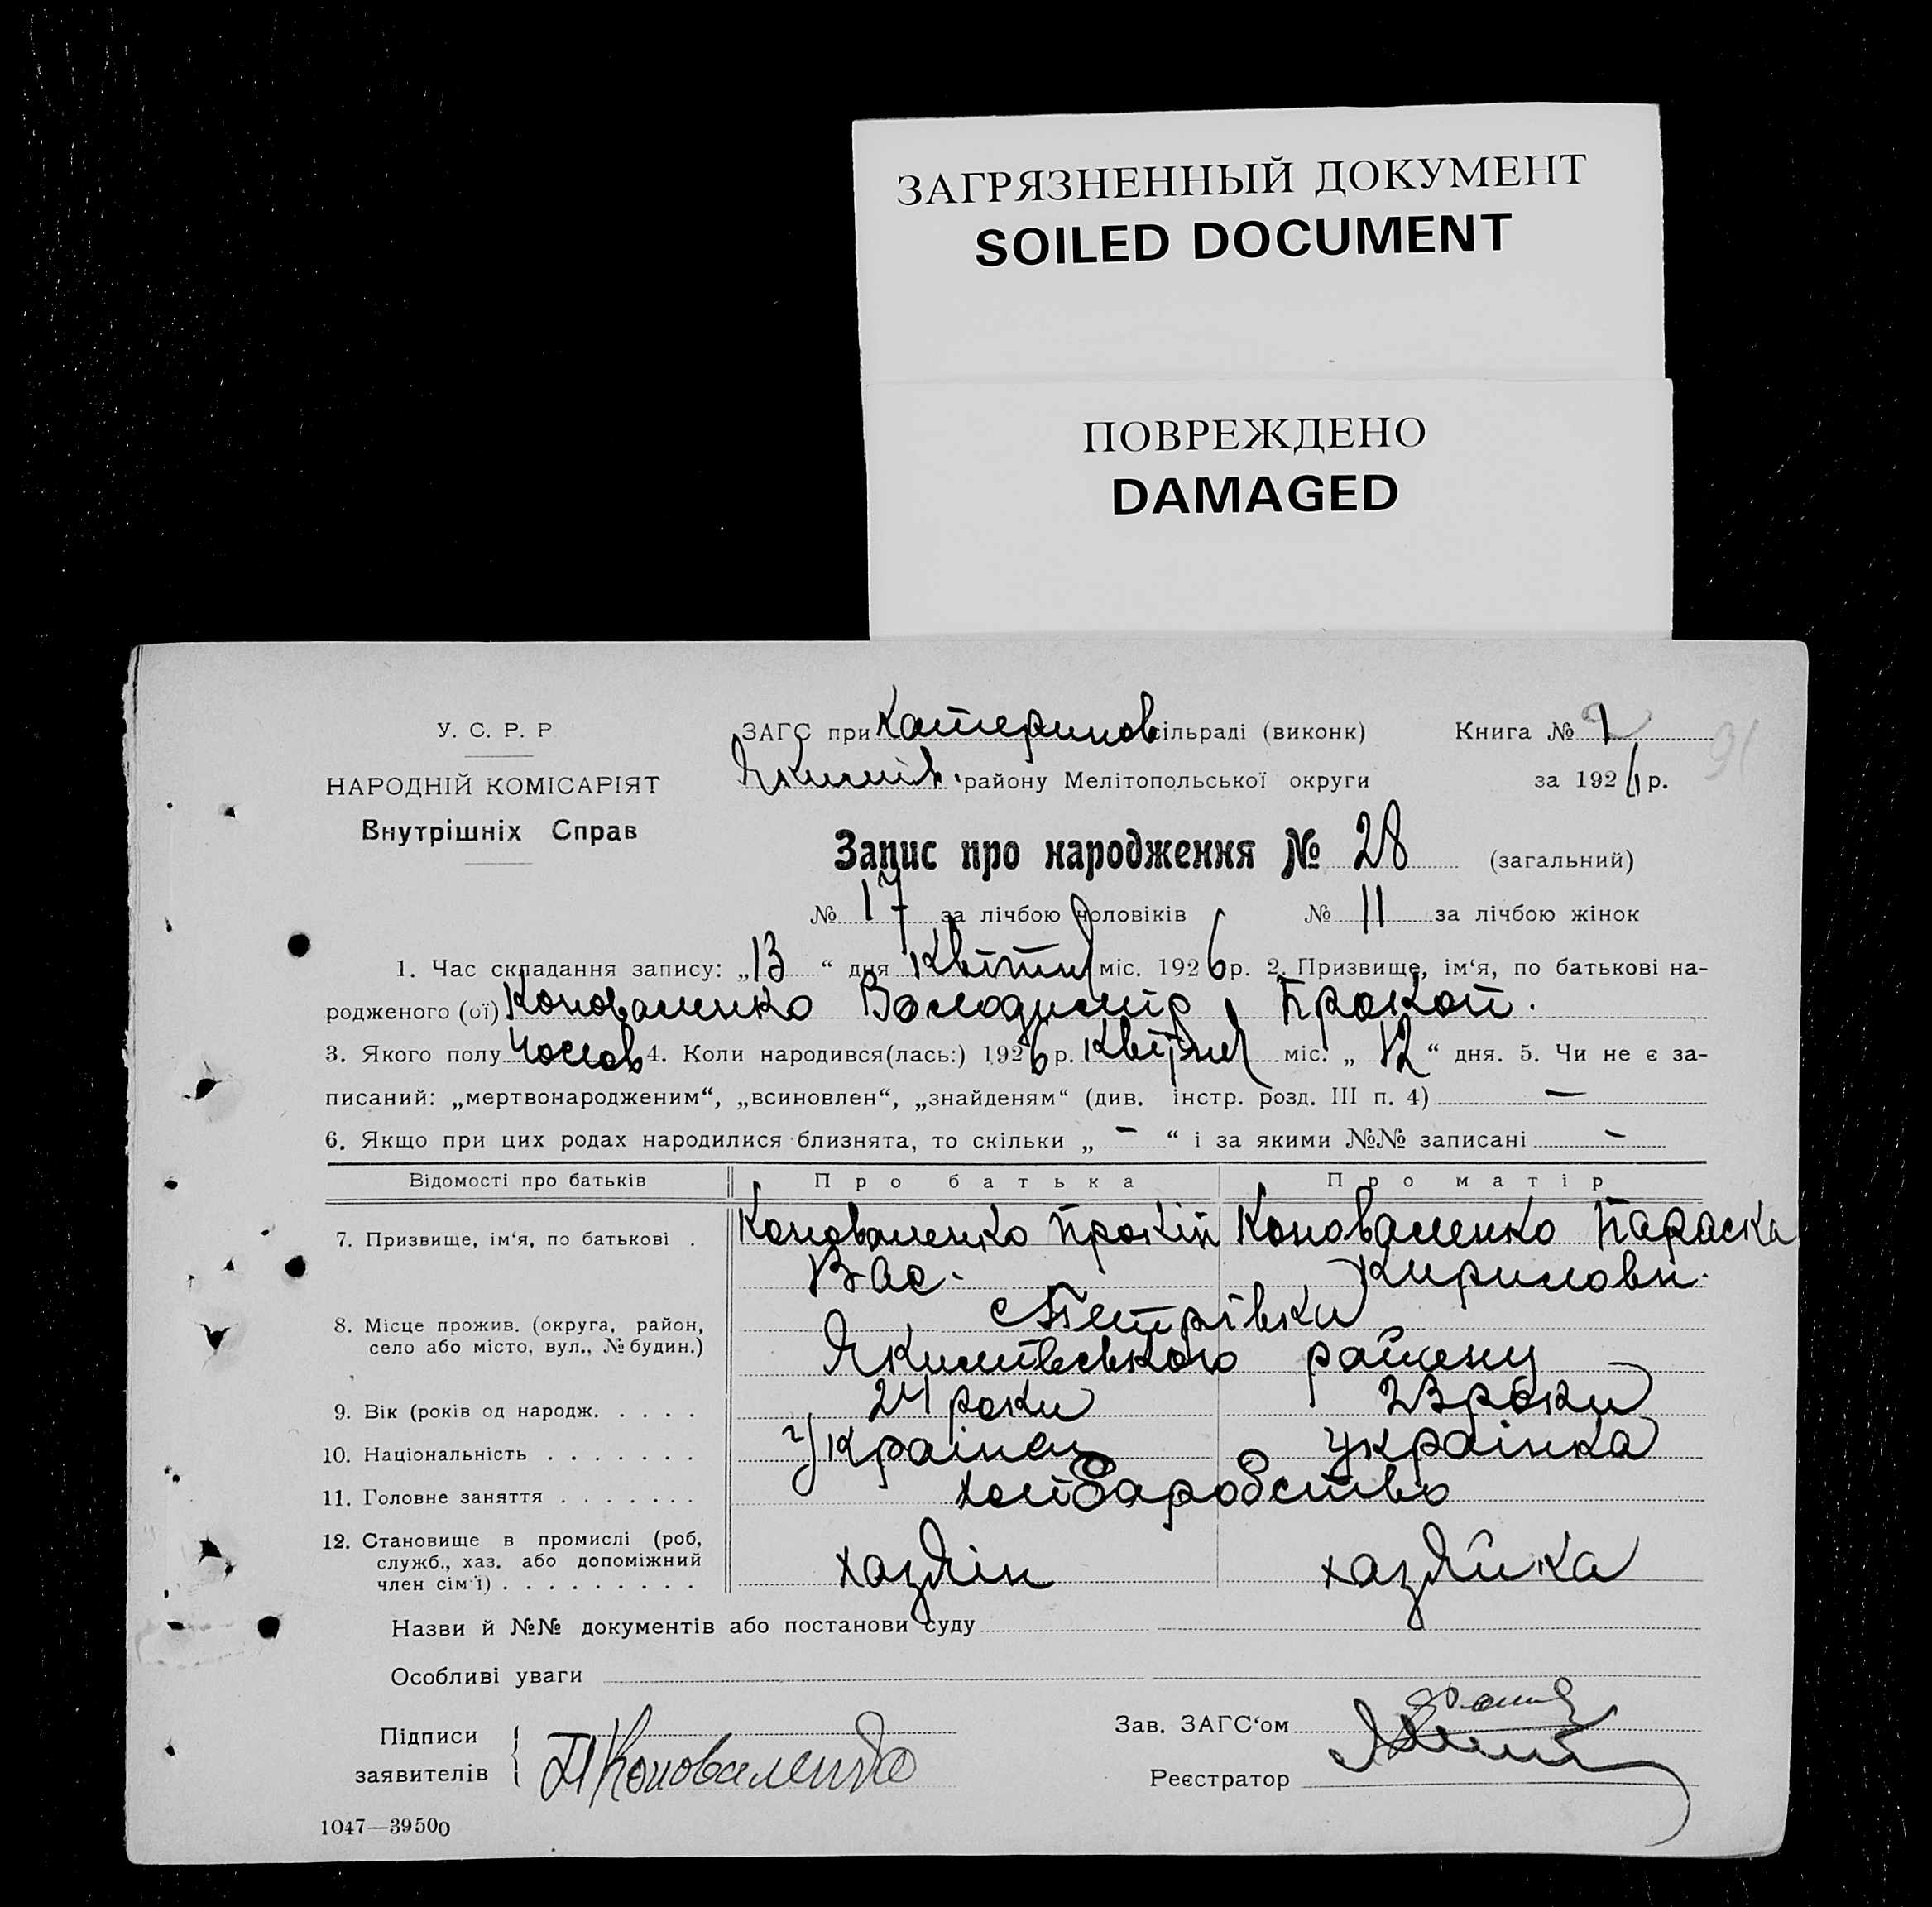 ЗАГРЯЗНЕННЫЙ ДОКУМЕНТ
SOILED DOCUMENT
ПОВРЕЖДЕНО
DAMAGED
У. С. Р. Р
НАРОДНІЙ КОМІСАРІЯТ
Внутрішніх Справ
ЗАГС при Катеринов сільраді (виконк)
Якимів. району Мелітопольської округи
Книга №
за 1926 р.
91
Запис про народження № 28 (загальний)
№ 17 за лічбою чоловіків № 11 за лічбою жінок
1. Час складання запису: „13“ дня Квітня міс. 1926 р. 2. Призвище, ім‘я, по батькові на-
родженого (ої) Коноваленко Володимір Прокоп.
3. Якого полу Чолов 4. Коли народився(лась:) 1926 р. Квітня міс. „12“ дня. 5. Чи не є за-
писаний: „мертвонародженим“, „всиновлен“, „знайденям“ (див. інстр. розд. III п. 4) —
6. Якщо при цих родах народилися близнята, то скільки „ – “ і за якими №№ записані –
Відомості про батьків Про батька Про матір
7. Призвище, ім‘я, по батькові . Коноваленко Прокіп Коноваленко Параска
Вас. Кириловн.
8. Місце прожив. (округа, район, с Петрівки
село або місто, вул., № будин.) Якимівського району
9. Вік (років од народж. . . . . 24 роки 23 роки
10. Національність . . . . . . . Українец Українка
11. Головне заняття . . . . . . . хліборобство
12. Становище в промислі (роб,
служб., хаз. або допоміжний
член сім‘ї) . . . . . . . . . хазяін хазяйка
Назви й №№ документів або постанови суду
Особливі уваги
Підписи
заявителів П Коноваленко
Зав. ЗАГС‘ом
Реєстратор
1047—39500